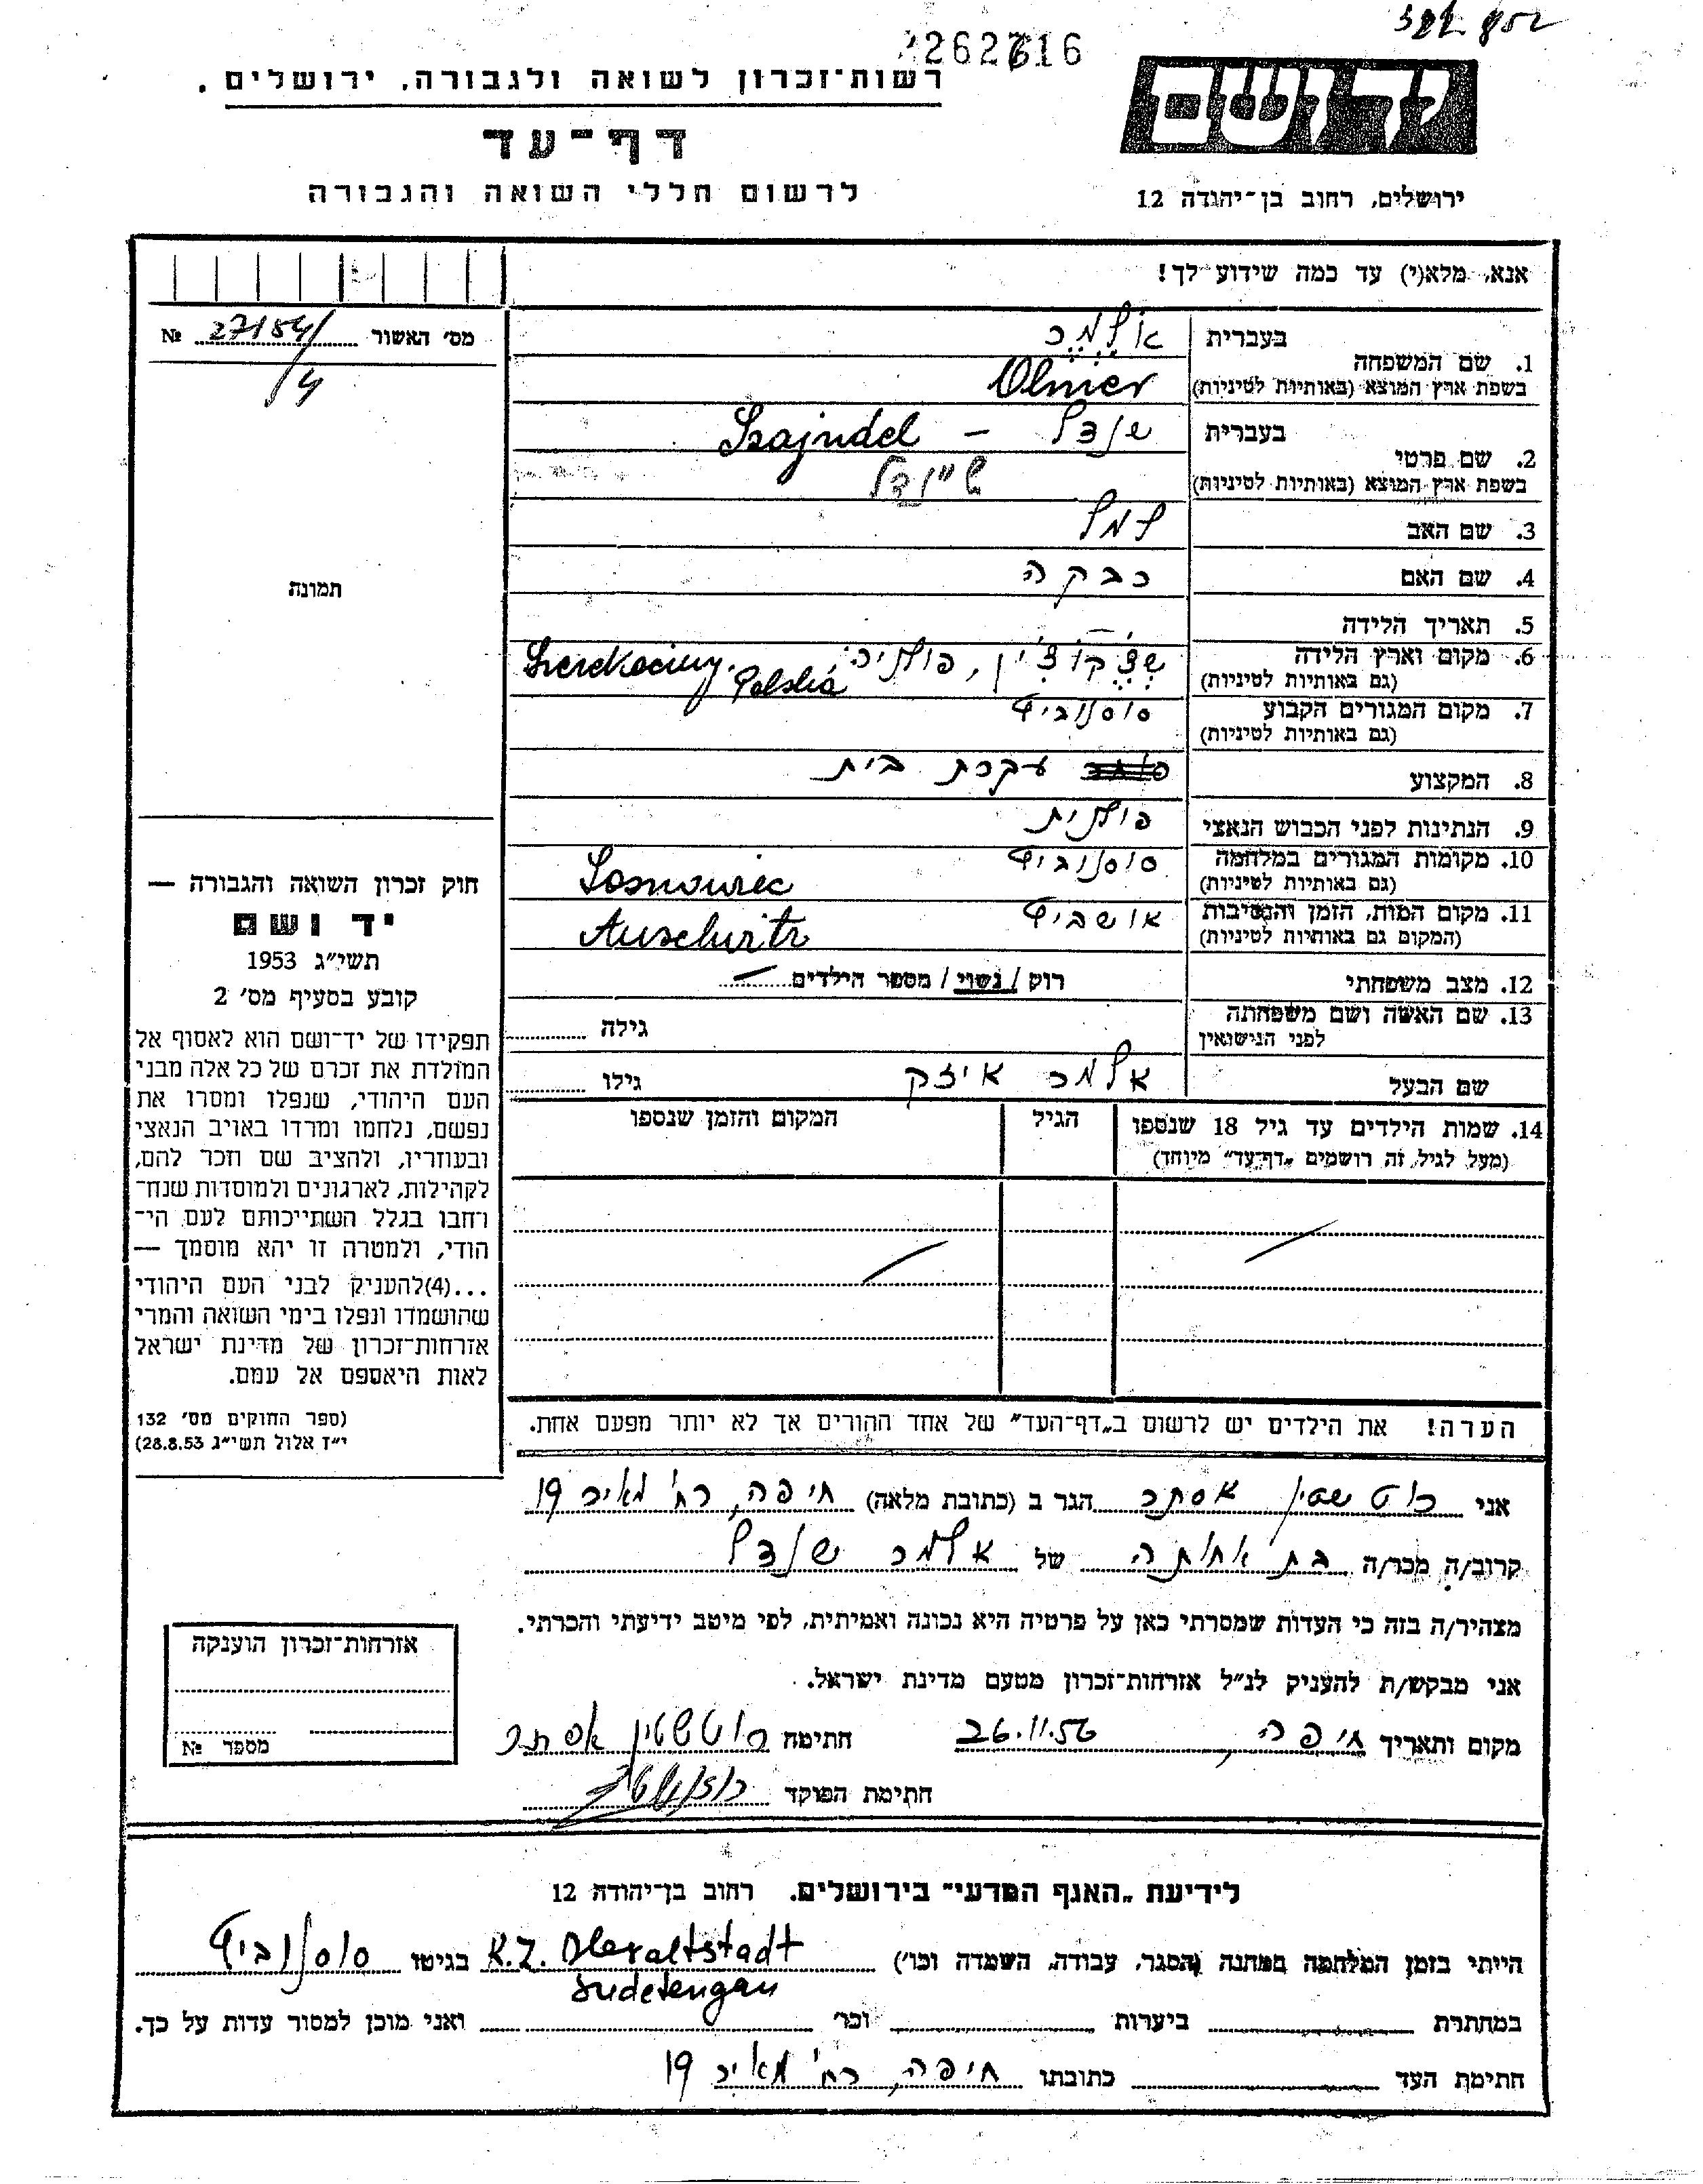 262616
יד ושם
רשות־זכרון לשואה ולגבורה, ירושלים.
דף־עד
לרשום חללי השואה והגבורה
ירושלים, רחוב בן־יהודה 12
אנא, מלא(י) עד כמה שידוע לך!
מס' האשור № 27184/
4
תמונה
חוק זכרון השואה והגבורה —
יד ושם
תשי״ג 1953
קובע בסעיף מס' 2
תפקידו של יד־ושם הוא לאסוף אל
המולדת את זכרם של כל אלה מבני
העם היהודי, שנפלו ומסרו את
נפשם, נלחמו ומרדו באויב הנאצי
ובעוזריו, ולהציב שם וזכר להם,
לקהילות, לארגונים ולמוסדות שנח־
רחבו בגלל השתייכותם לעם הי־
הודי, ולמטרה זו יהא מוסמך —
...(4) להעניק לבני העם היהודי
שהושמדו ונפלו בימי השואה והמרי
אזרחות־זכרון של מדינת ישראל
לאות היאספם אל עמם.
(ספר החוקים מס' 132
י״ז אלול תשי״ג 28.8.53)
1. שם המשפחה בעברית אולמר
בשפת ארץ המוצא (באותיות לטיניות) Olmer
2. שם פרטי בעברית שנדל - Szajndel
בשפת ארץ המוצא (באותיות לטיניות) שיינדל
3. שם האב למל
4. שם האם רבקה
5. תאריך הלידה —
6. מקום וארץ הלידה שצ'קוצ'ין, פולניה
(גם באותיות לטיניות) Szczekociny, Polska
7. מקום המגורים הקבוע סוסנוביץ
(גם באותיות לטיניות)
8. המקצוע עקרת בית
9. הנתינות לפני הכבוש הנאצי פולנית
10. מקומות המגורים במלחמה סוסנוביץ
(גם באותיות לטיניות) Sosnowiec
11. מקום המות, הזמן והנסיבות אושביץ
(המקום גם באותיות לטיניות) Auschwitz
12. מצב משפחתי רוק / נשוי / מספר הילדים —
13. שם האשה ושם משפחתה גילה
לפני הנישואין
שם הבעל אלמר איזק גילו
14. שמות הילדים עד גיל 18 שנספו הגיל המקום והזמן שנספו
(מעל לגיל זה רושמים „דף־עד״ מיוחד)
הערה! את הילדים יש לרשום ב„דף־העד״ של אחד ההורים אך לא יותר מפעם אחת.
אני רוטשטין אסתר הגר ב (כתובת מלאה) חיפה, רח' מאיר 19
קרוב/ה מכר/ה בת אחותה של אלמר שנדל
מצהיר/ה בזה כי העדות שמסרתי כאן על פרטיה היא נכונה ואמיתית, לפי מיטב ידיעתי והכרתי.
אני מבקש/ת להעניק לנ״ל אזרחות־זכרון מטעם מדינת ישראל.
מקום ותאריך חיפה, 26.11.56 חתימה רוטשטין אסתר
חתימת הפוקד
אזרחות־זכרון הוענקה
מספר №
לידיעת „האגף המדעי״ בירושלים. רחוב בן־יהודה 12
הייתי בזמן המלחמה במחנה (הסגר, עבודה, השמדה וכו') K.Z. Oberaltstadt בגיטו סוסנוביץ
Sudetengau
במחתרת ביערות וכו' ואני מוכן למסור עדות על כך.
חתימת העד כתובתו חיפה, רח' מאיר 19